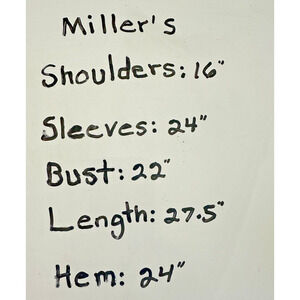 Miller's
Shoulders: 16"
Sleeves: 24"
Bust: 22"
Length: 27.5"
Hem: 24"